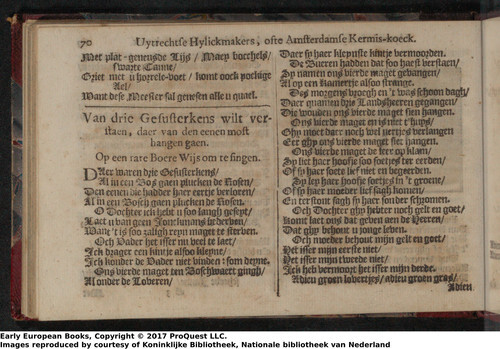 70 Uytrechtse Hylickmakers, ofte Amsterdamse Kermis-koeck.
Met plat-geneusde Tijs / Maey borchels /
swarte Tanne /
Griet met u horrele-voet / komt oock pockige
Ael /
Want dese Meester sal genesen alle u quael.
Van drie Gesusterkens wilt ver-
staen, daer van den eenen most
hangen gaen.
Op een rare Boere Wijs om te singen.
DAer waren drie Gesusterkens /
Al in een Bos gaen plucken de Rosen /
Den eenen die hadder haer eertje verloren /
Al in een Bosch gaen plucken de Rosen.
O Dochter ick hebt u soo langh gesept /
Laet u van geen Jonckmans bederven /
Want 't is soo saligh reyn maget te sterven.
Och Vader het isser nu veel te laet /
Ick drager een kintje alsoo kleyne /
Ick konder de Vader niet vinden soom deyne.
Ons vierde maget ten Bosschwaert gingh /
Al onder de Loveren /
Daer sy haer kleynste kintje vermoorden.
De Bueren hadden dat soo haest verstaen /
Sy namen ons vierde maget gevangen /
Al op een Kamertje alsoo strange.
Des morgens vroegh en 't was schoon dagh /
Daer quamen drie Landsheeren gegangen /
Die wouden ons vierde maget sien hangen.
Ons vierde maget en is niet t'huys /
Ghy moet daer noch wel siertjes verlangen
Eer ghy ons vierde maget siet hangen.
Ons vierde maget de leer op klam /
Sy liet haer hoofje soo soetjes ter eerden /
Of sy haer soete lief niet en begeerden.
Sy ley haer hoofje soetjes in 't groene /
Of sy haer moeder lief sagh komen /
En ter stont sagh sy haer sonder schromen.
Och Dochter ghy hebter noch gelt en goet /
Komt laet ons dat geven aen de Heeren /
Dat ghy behout u jonge leven.
Och moeder behout mijn gelt en goet /
Het isser mijn eerste niet /
Het isser mijn tweede niet /
Ick heb vermoort het isser mijn derde.
Adieu groen lovertjes / adieu groen gras /
Adieu
Early European Books, Copyright © 2017 ProQuest LLC.
Images reproduced by courtesy of Koninklijke Bibliotheek, Nationale bibliotheek van Nederland